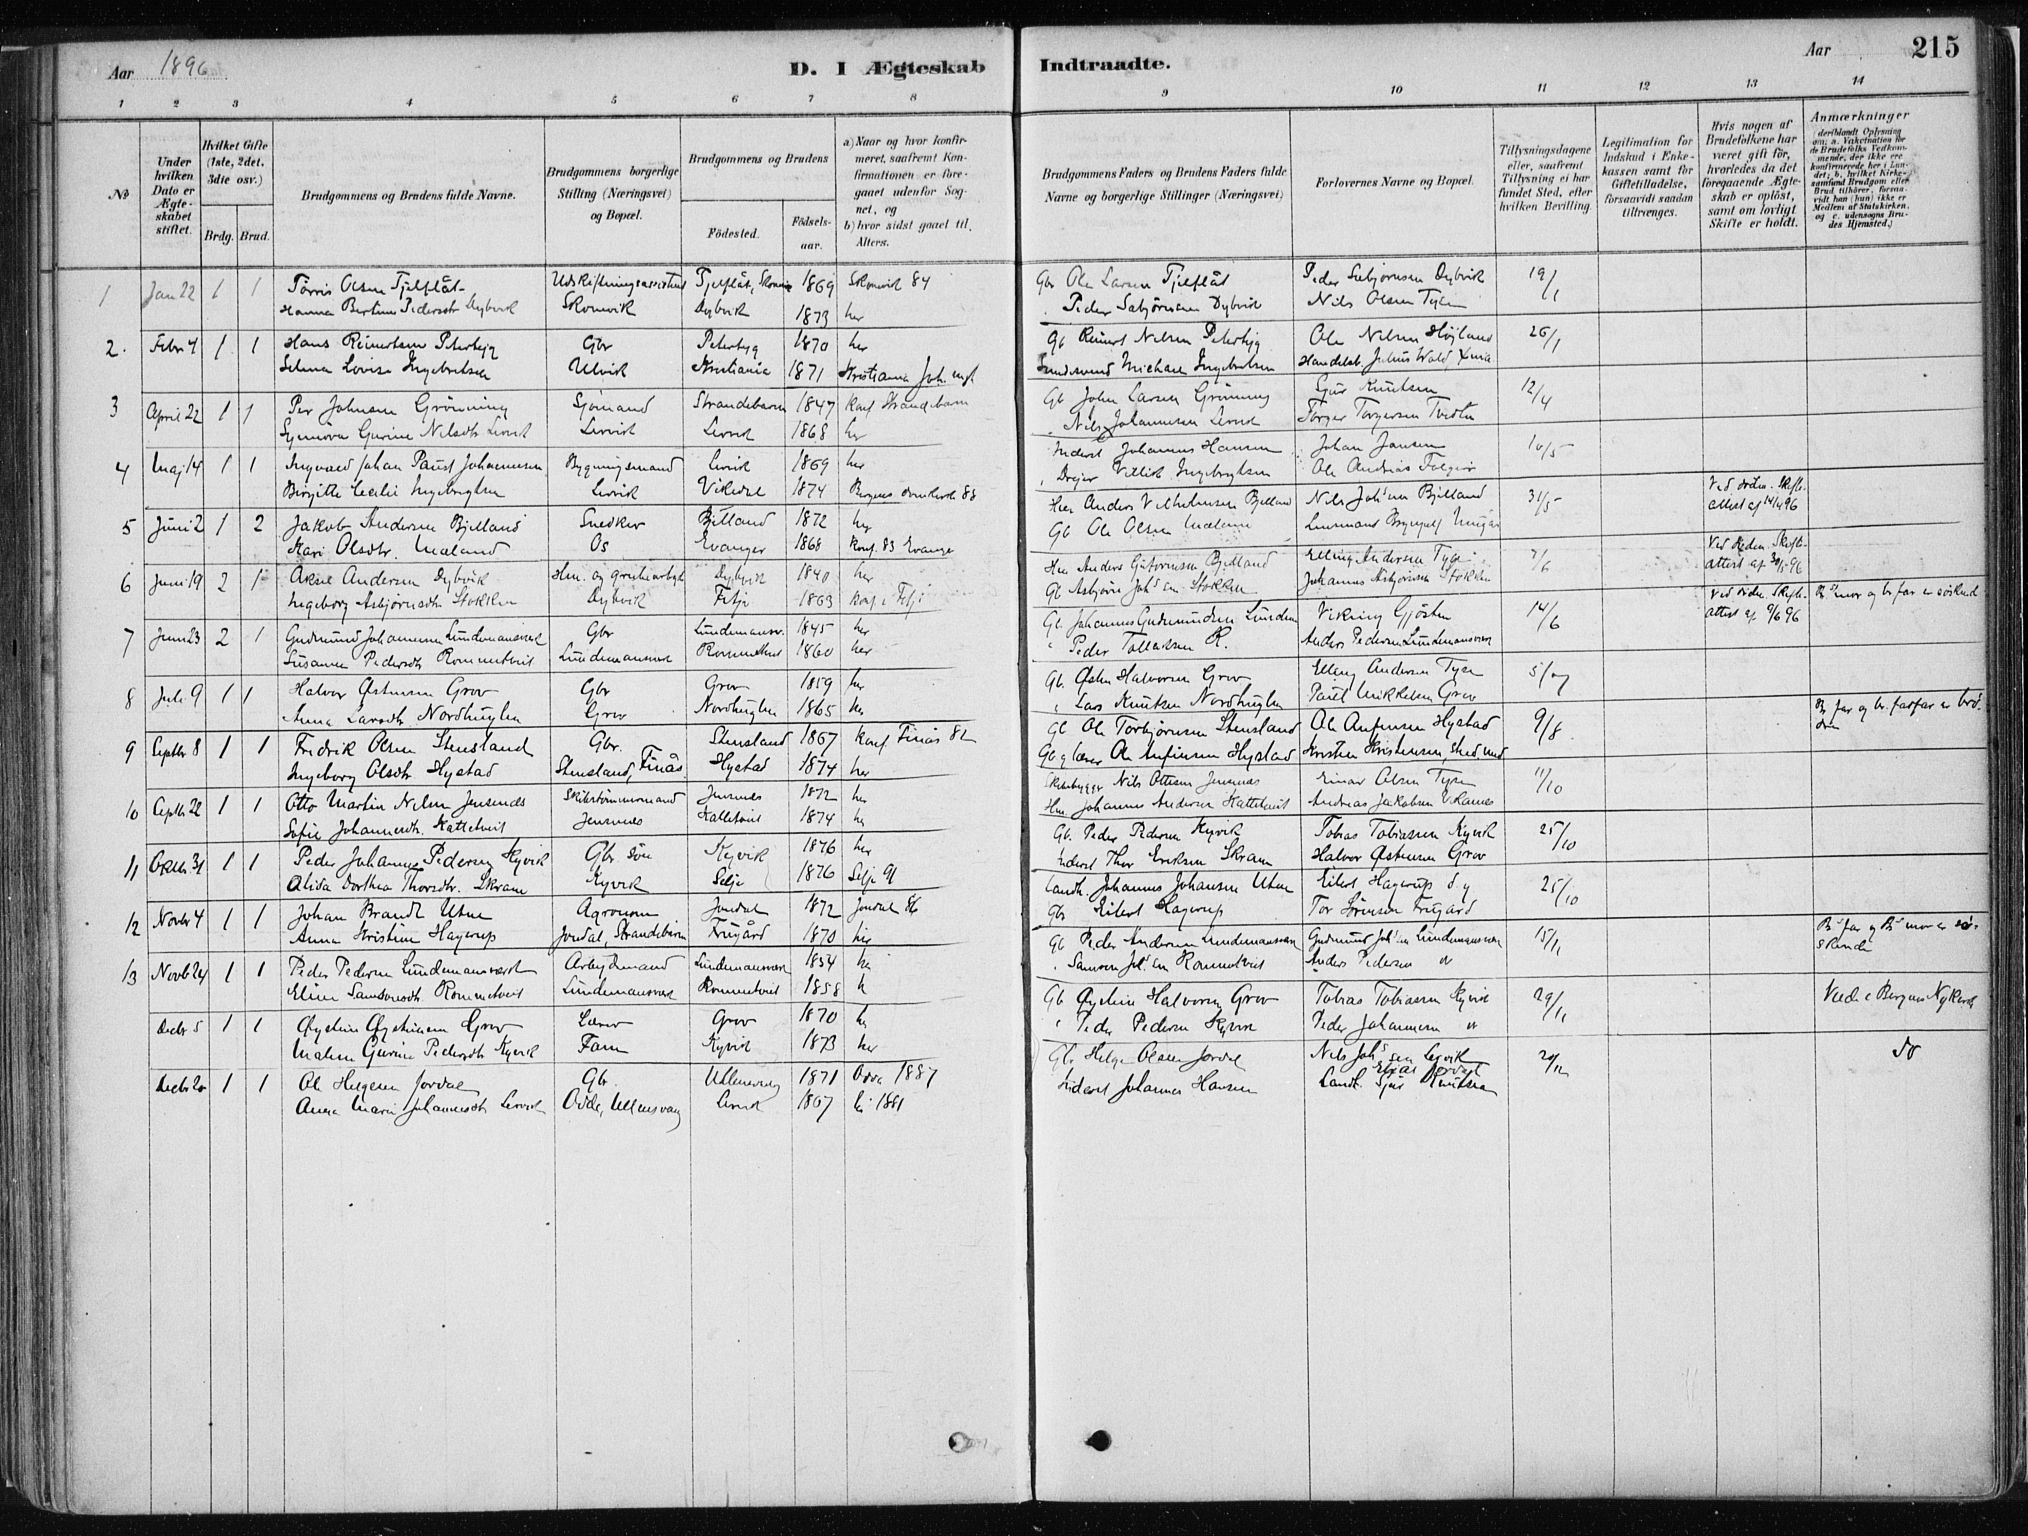 Aar 1896
D. I Ægteskab Indtraadte.
Aar
215
1 2 3 4 5 6 7 8 9 10 11 12 13 14
No
Under hvilken Dato er Ægteskabet stiftet.
Hvilket Gifte (1ste, 2det, 3die osv.)
Brdg. Brud.
Brudgommens og Brudens fulde Navne.
Brudgommens borgerlige Stilling (Næringsvei) og Bopæl.
Brudgommens og Brudens
Fødested.
Fødselsaar.
a) Naar og hvor konfirmeret, saafremt Konfirmationen er foregaaet udenfor Sognet, og
b) hvor sidst gaaet til Alters.
Brudgommens Faders og Brudens Faders fulde Navne og borgerlige Stillinger (Næringsvei)
Forlovernes Navne og Bopæl.
Tillysningsdagene eller, saafremt Tillysning ei har fundet Sted, efter hvilken Bevilling.
Legitimation for Indskud i Enkekassen samt for Giftetilladelse, forsaavidt saadan tiltrænges.
Hvis nogen af Brudefolkene har været gift før, hvorledes da det foregaaende Ægteskab er opløst, samt om lovligt Skifte er holdt.
Anmærkninger
1 Jan 22 1 1 Tørris Olsen Tjelflåt Udskiftningsassistent Tjelflåt, Skonevik 1869 Skonevik 84 Gbr Ole Larsen Tjelflåt Peder Sæbjørnsen Dybvik 19/1
Hanna Bertine Pedersdtr Dybvik Skonevik Dybvik 1873 her Peder Sæbjørnsen Dybvik Nils Olsen Tyse
2. Febr 4 1 1 Hans Reinertsen Peterbyg Gbr Peterbyg 1870 her Gb Reinert Nilsen Peterbyg Ole Nilsen Højland 26/1
Selma Lovise Ingebretsen Ulvik Kristiania 1871 Kristiania Joh. Michael Ingebretsen Handelsb. Julius Wold
3 April 22 1 1 Per Johnsen Grønning Sjømand Strandebarm 1847 konf Strandebarm Gb John Larsen Grønning Sjur Knutsen 12/4
Synnøva Gurine Nilsdtr Lervik Lervik Lervik 1868 her Nils Johannesen Lervik Torger Torgersen Tveita
4 Maj 14 1 1 Ingvald Johan Paust Johannesen Bygningsmand Lervik 1869 her Inderst Johannes Hansen Johan Jansen 10/5
Birgitte Cecilie Ingebrigtsen Lervik Vikedal 1874 Bergens domkirke 88 Drejer Ingebrigtsen Ole Andreas
5 Juni 2 1 2 Jakob Andersen Bjelland Snedker Bjelland 1872 her Hm Anders Vilhelmsen Bjelland Nils Johsen Bjelland 31/5 Ved orden. Skifteattest af 14/4 96
Kari Olsdtr. Mæland Os Evanger 1868 konf. 83 Evanger Gb Ole Olsen Mæland
6 Juni 19 2 1 Aksel Andersen Dybvik Hm. og grubearbejd Dybvik 1840 her Hm Anders Guttormsen Bjelland Elling Andersen Tyse 7/6 Ved orden. Skifteattest af 30/5 96
Ingeborg Asbjørnsdtr Stokken Dybvik Fitje 1863 konf i Fitje Gb Asbjørn Johsen Stokken Johannes Asbjørnsen Stokken
7 Juni 23 2 1 Gudmund Johannesen Lundemansverk Gbr Lundemansv. 1845 her Gb. Johannes Gudmundsen Lundem Vikning Gjøsten 14/6 Ved orden. Skifteattest af 9/6 96 Bs mor og br. far er søskend
Susanna Pedersdtr Rommetveit Lundemansverk Rommetveit 1860 her Peder Tollaksen R. Anders Pedersen Lundemansverk
8 Juli 9 1 1 Halvor Østensen Grov Gbr Grov 1859 her Gb. Østen Halvorsen Grov Elling Andersen Tyse 5/7
Anna Larsdtr Nordhuglen Grov Nordhuglen 1865 her Lars Knutsen Nordhuglen Paul Mikkelsen Grov
9 Septbr 8 1 1 Fredrik Olsen Stensland Gbr. Stensland 1867 konf Finås 82 Gb Ole Torbjørnsen Stensland Ole Anfinsen Hystad 9/8 B far og br. farfar er brødre
Ingeborg Olsdtr Hystad Stensland, Finås Hystad 1874 her Gb og lærer Ole Anfinsen Hystad Kristen Kristensen, Stud. med
10 Septbr 22 1 1 Otto Martin Nilsen Jensenes Skibstømmermand Jensenes 1872 her Skibsbygger Nils Ottesen Jensenes Einar Olsen Tyse 11/10
Sofie Johannesdtr. Kattetveit Jensenes Kattetveit 1874 her Hm. Johannes Andersen Kattetveit Andreas Jakobsen Vikanes
11 Oktbr 31 1 1 Peder Johannes Pedersen Kyvik Gbr. søn Kyvik 1876 her Gb. Peder Pedersen Kyvik Tobias Tobiassen Kyvik 25/10
Alida Dorthea Thorsdtr. Skram Kyvik Selje 1876 Selje 91 Inderst Thor Eriksen Skram Halvor Østensen Grov
12 Novbr 4 1 1 Johan Brandt Utne Agronom Jondal 1872 Jondal 86 Landh. Johannes Johansen Utne Eilert Hagerup d. y 25/10
Anna Kristine Hagerup Jondal, Strandebarm Frugård 1870 her Gbr Eilert Hagerup Tor Sørensen Frugård
13 Novbr 24 1 1 Peder Pedersen Lundemansverk Arbejdsmand Lundemansverk 1854 her Gb Peder Andersen Lundemansverk Gudmund Johsen Lundemansverk 15/11 Bs far og Bs mor er søskende
Eline Samsonsdtr. Rommetveit Lundemansverk Rommetveit 1858 h Samson Johsen Rommetveit Anders Pedersen
Decbr 5 1 1 Øystein Øysteinsen Grov Lærer Grov 1870 her Gb Øystein Halvorsen Grov Tobias Tobiassen Kyvik 29/11 Viede i Bergens Nykirke
Malene Gurine Pedersdtr Kyvik Fane Kyvik 1873 her Peder Pedersen Kyvik Peder Johannesen
Decbr 20 1 1 Ole Helgesen Jordal Gbr. Ullensvang 1871 Odda 1887 Gbr Helge Olsen Jordal Nils Johsen Lervik 20/12 do
Anna Marie Johannesdtr Lervik Odde, Ullensvang Lervik 1867 her 1881 Inderst Johannes Hansen Landh. Sjur Knutsen